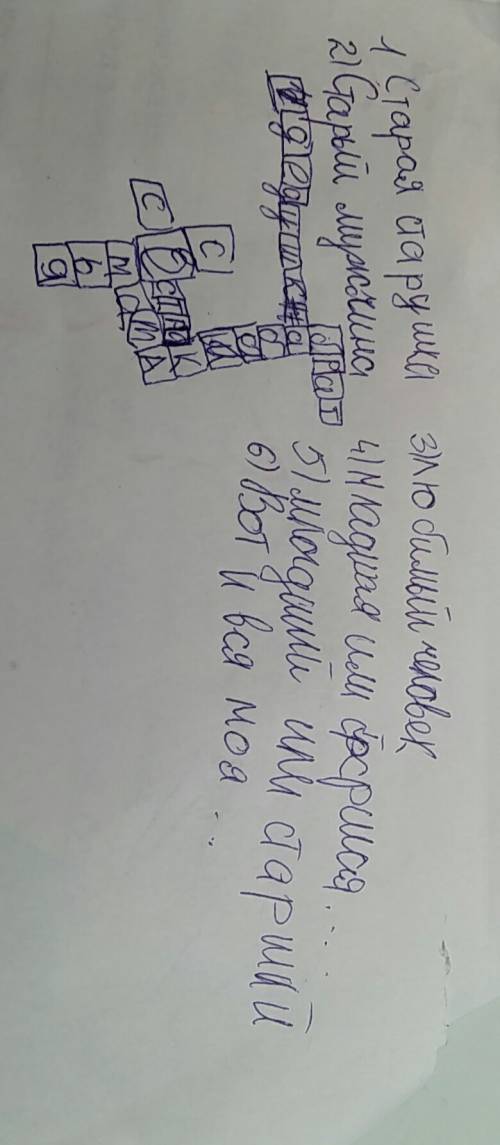 1 Старая старушка
2) Старый мужчина
3) Любимый человек
4) Младшая или
5) младший или старший
6) Вот и вся моя ...
дедушка
брат
мама
сестра
семья